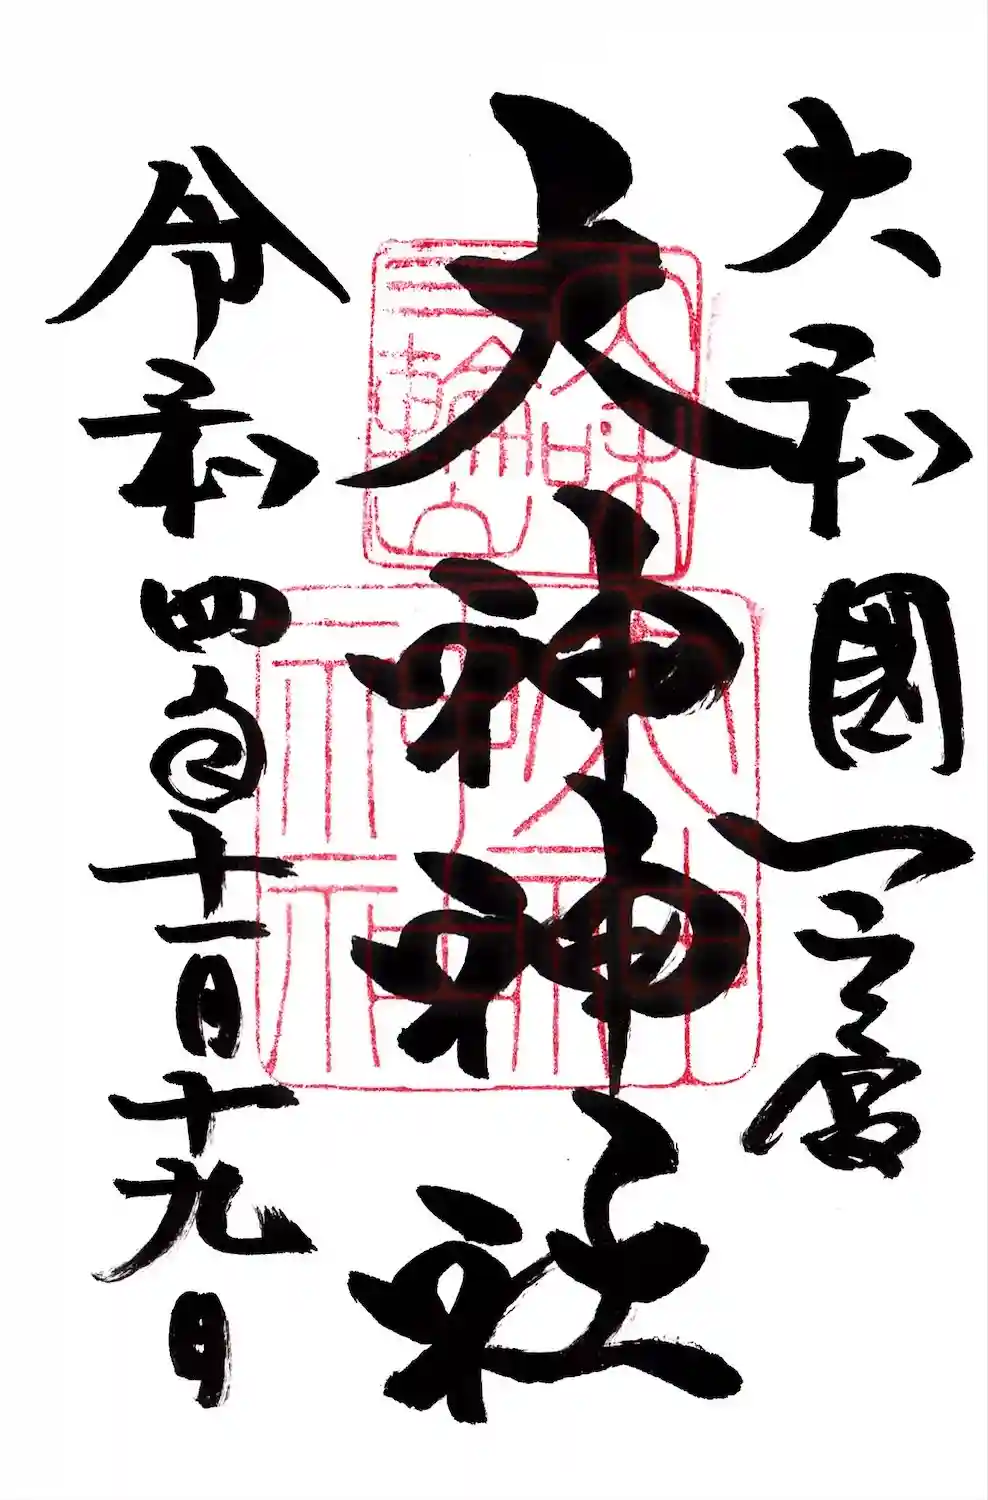 大和國一之宮
大神神社
令和四年十一月十九日
大和三輪山
大神神社